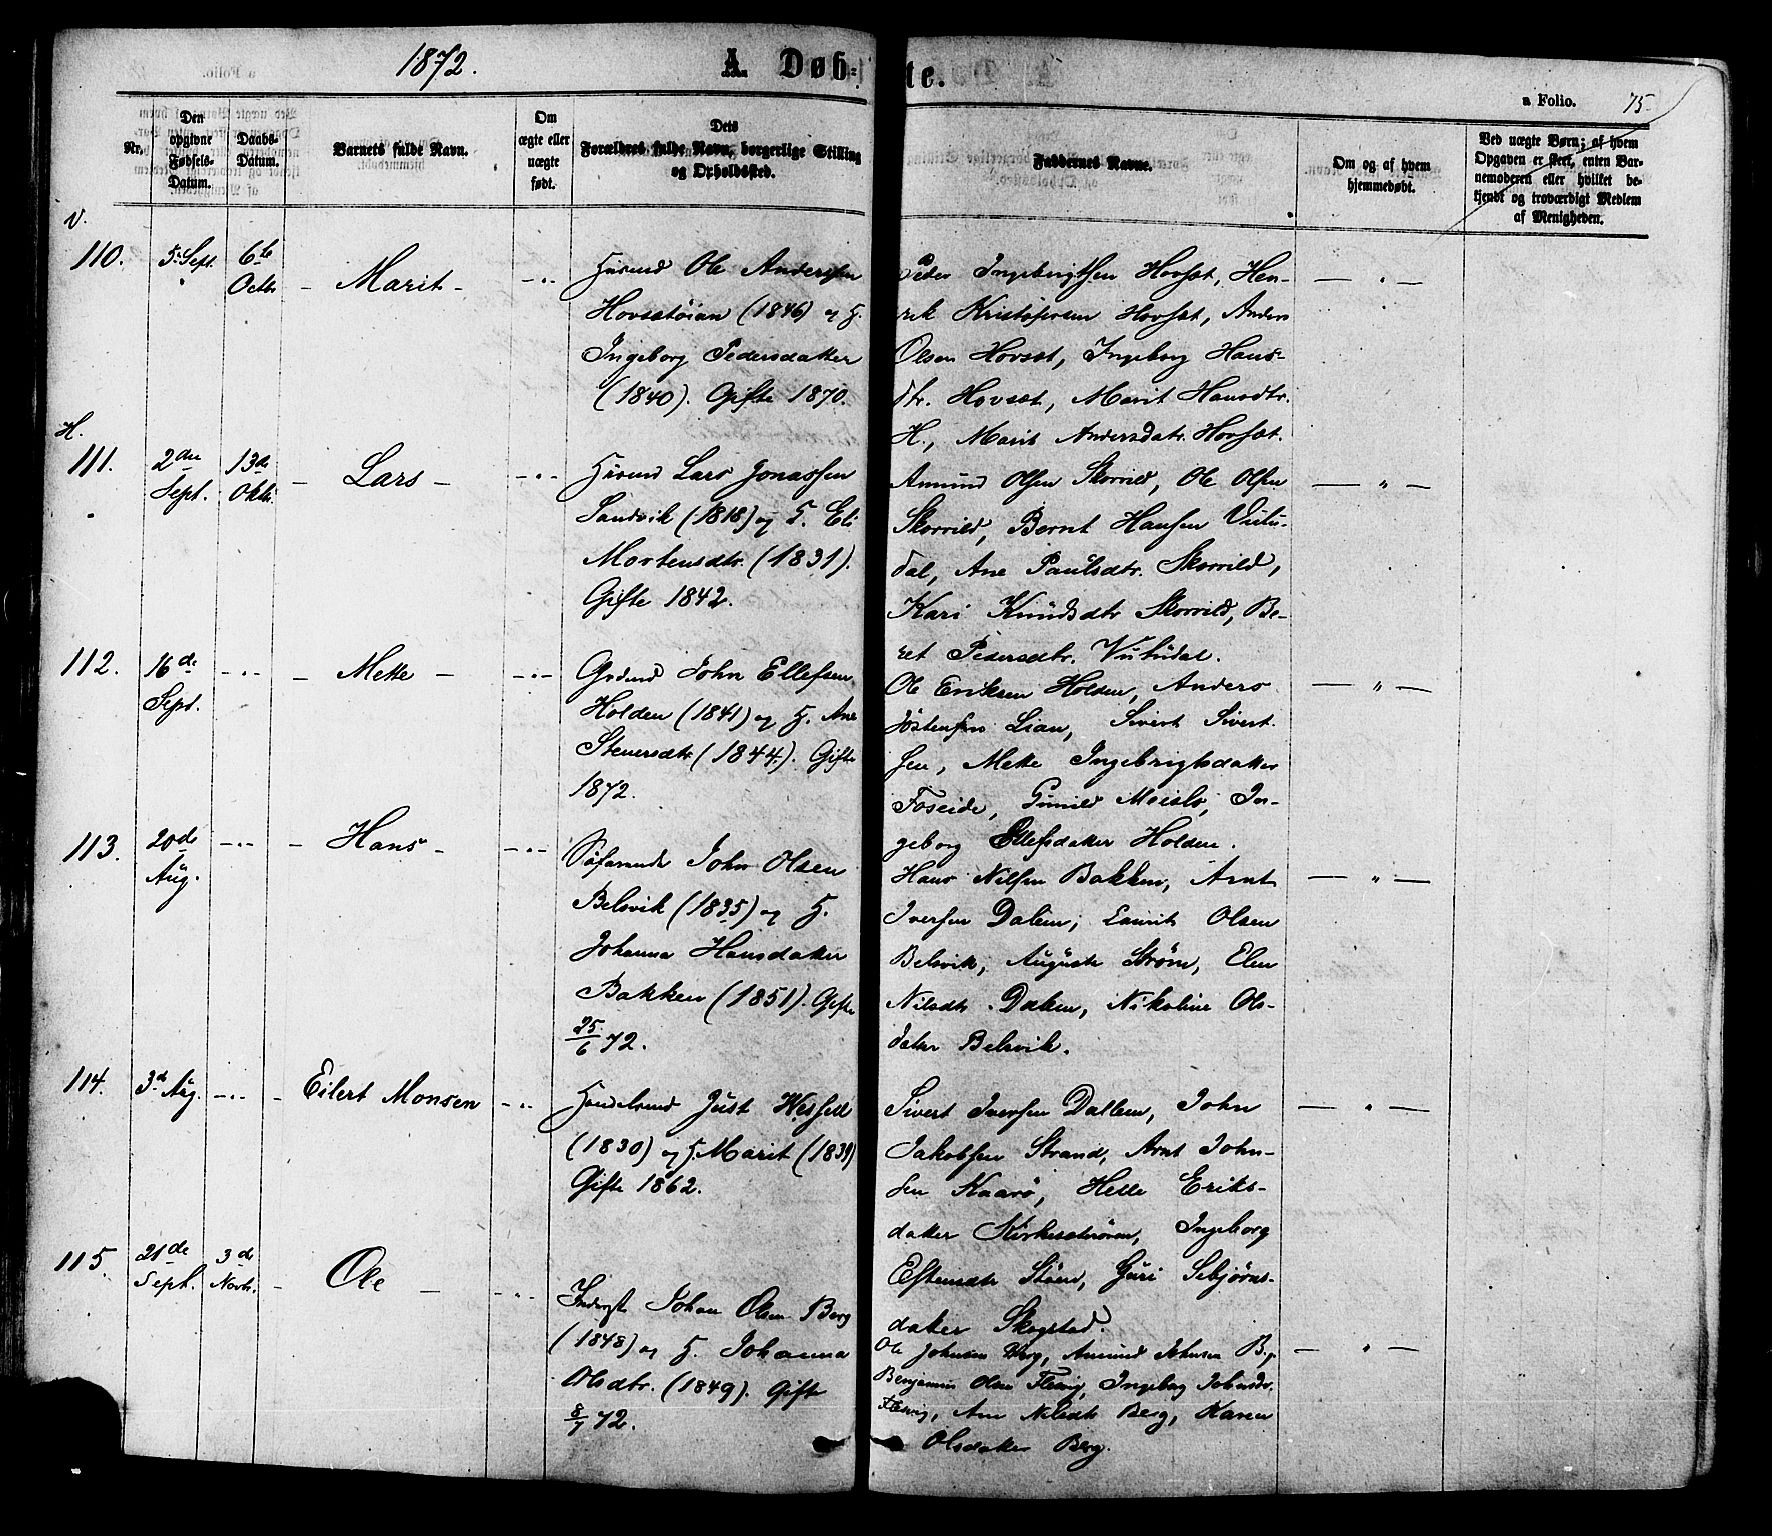 1872.
A Døb-
te.
a Folio. 75
Nr.
Den opgivne Fødsels-Datum.
Daabs-Datum.
Barnets fulde Navn.
Om ægte eller uægte født.
Dets Forældres fulde Navn, borgerlige Stilling og Opholdssted.
Faddernes Navne.
Om og af hvem hjemmedøbt.
Ved uægte Børn; af hvem Opgaven er skeet, enten Barnemoderen eller hvilket bekjendt og troværdigt Medlem af Menigheden.
V.
110. 5. Sept. 6te Octbr. – Marit – – " –
Husmd Ole Andersen
Hovsetøian (1846) og H.
Ingeborg Pedersdatter
(1840). Gifte 1870.
Peder Ingebrigtsen Hovsæt, Hen-
rik Kristofersen Hovsæt, Anders
Olsen Hovsæt, Ingeborg Hans-
dtr. Hovsæt, Marit Hansdtr.
H., Marit Andersdatr. Hovsæt.
– " –
H.
111. 2den Sept. 13de Oktbr. – Lars – – " –
Husmd Lars Jonassen
Sandvik (1818) og H. Eli
Mortensdtr. (1831).
Gifte 1842.
Amund Olsen Skorild, Ole Olsen
Skorrild, Bernt Hansen Vutu-
dal, Ane Paulsdtr. Skorrild,
Kari Knudsdtr Skorrild, Be-
ret Pedersdtr. Vutudal.
– " –
112. 16de Sept. – " – – Mette – – " –
Grdmd John Ellefsen
Holden (1841) og H. Ane
Steuersdtr (1844). Gifte
1872.
Ole Eriksen Holden, Anders
Jostensen Lian, Sivert Sivert-
sen, Mette Ingebrigtsdatter
Foseide, Gunild Meislo, In-
geborg Ellefsdatter Holden.
– " –
113. 20de Aug. – " – – Hans – – " –
Søfarende John Olsen
Belsvik (1835) og H.
Johanna Hansdatter
Bakken (1851). Gifte
25/6 72.
Hans Nilsen Bakken, Arnt
Iversen Dalen, Laurit Olsen
Belsvik, Auguste Strøm, Elen
Nilsdtr Dalen, Nikoline Ols-
datter Belsvik.
– " –
114. 3de Aug. – " – – Eilert Monsen – " –
Handelsmd Just Wessell
(1830) og H. Marit (1839)
Gifte 1862.
Sivert Iversen Dallem, John
Jakobsen Strand, Arnt John-
sen Kaarø, Helle Eriks-
datter Kirkesætrøen, Ingeborg
Eftensdtr Støen, Guri Sebjørns-
datter Skogstad.
– " –
115. 21de Sept. 3de Novbr. – Ole – – " –
Inderst Johan Olsen Berg
(1848) og H. Johanna
Olsdtr. (1849). Gifte
8/7 72.
Ole Johnsen Berg, Amund Johnsen B.,
Benjamin Olsen Flesvig, Ingeborg Johnsdtr.
Flesvig, Ane Nilsdtr Berg, Karen
Olsdatter Berg.
– " –